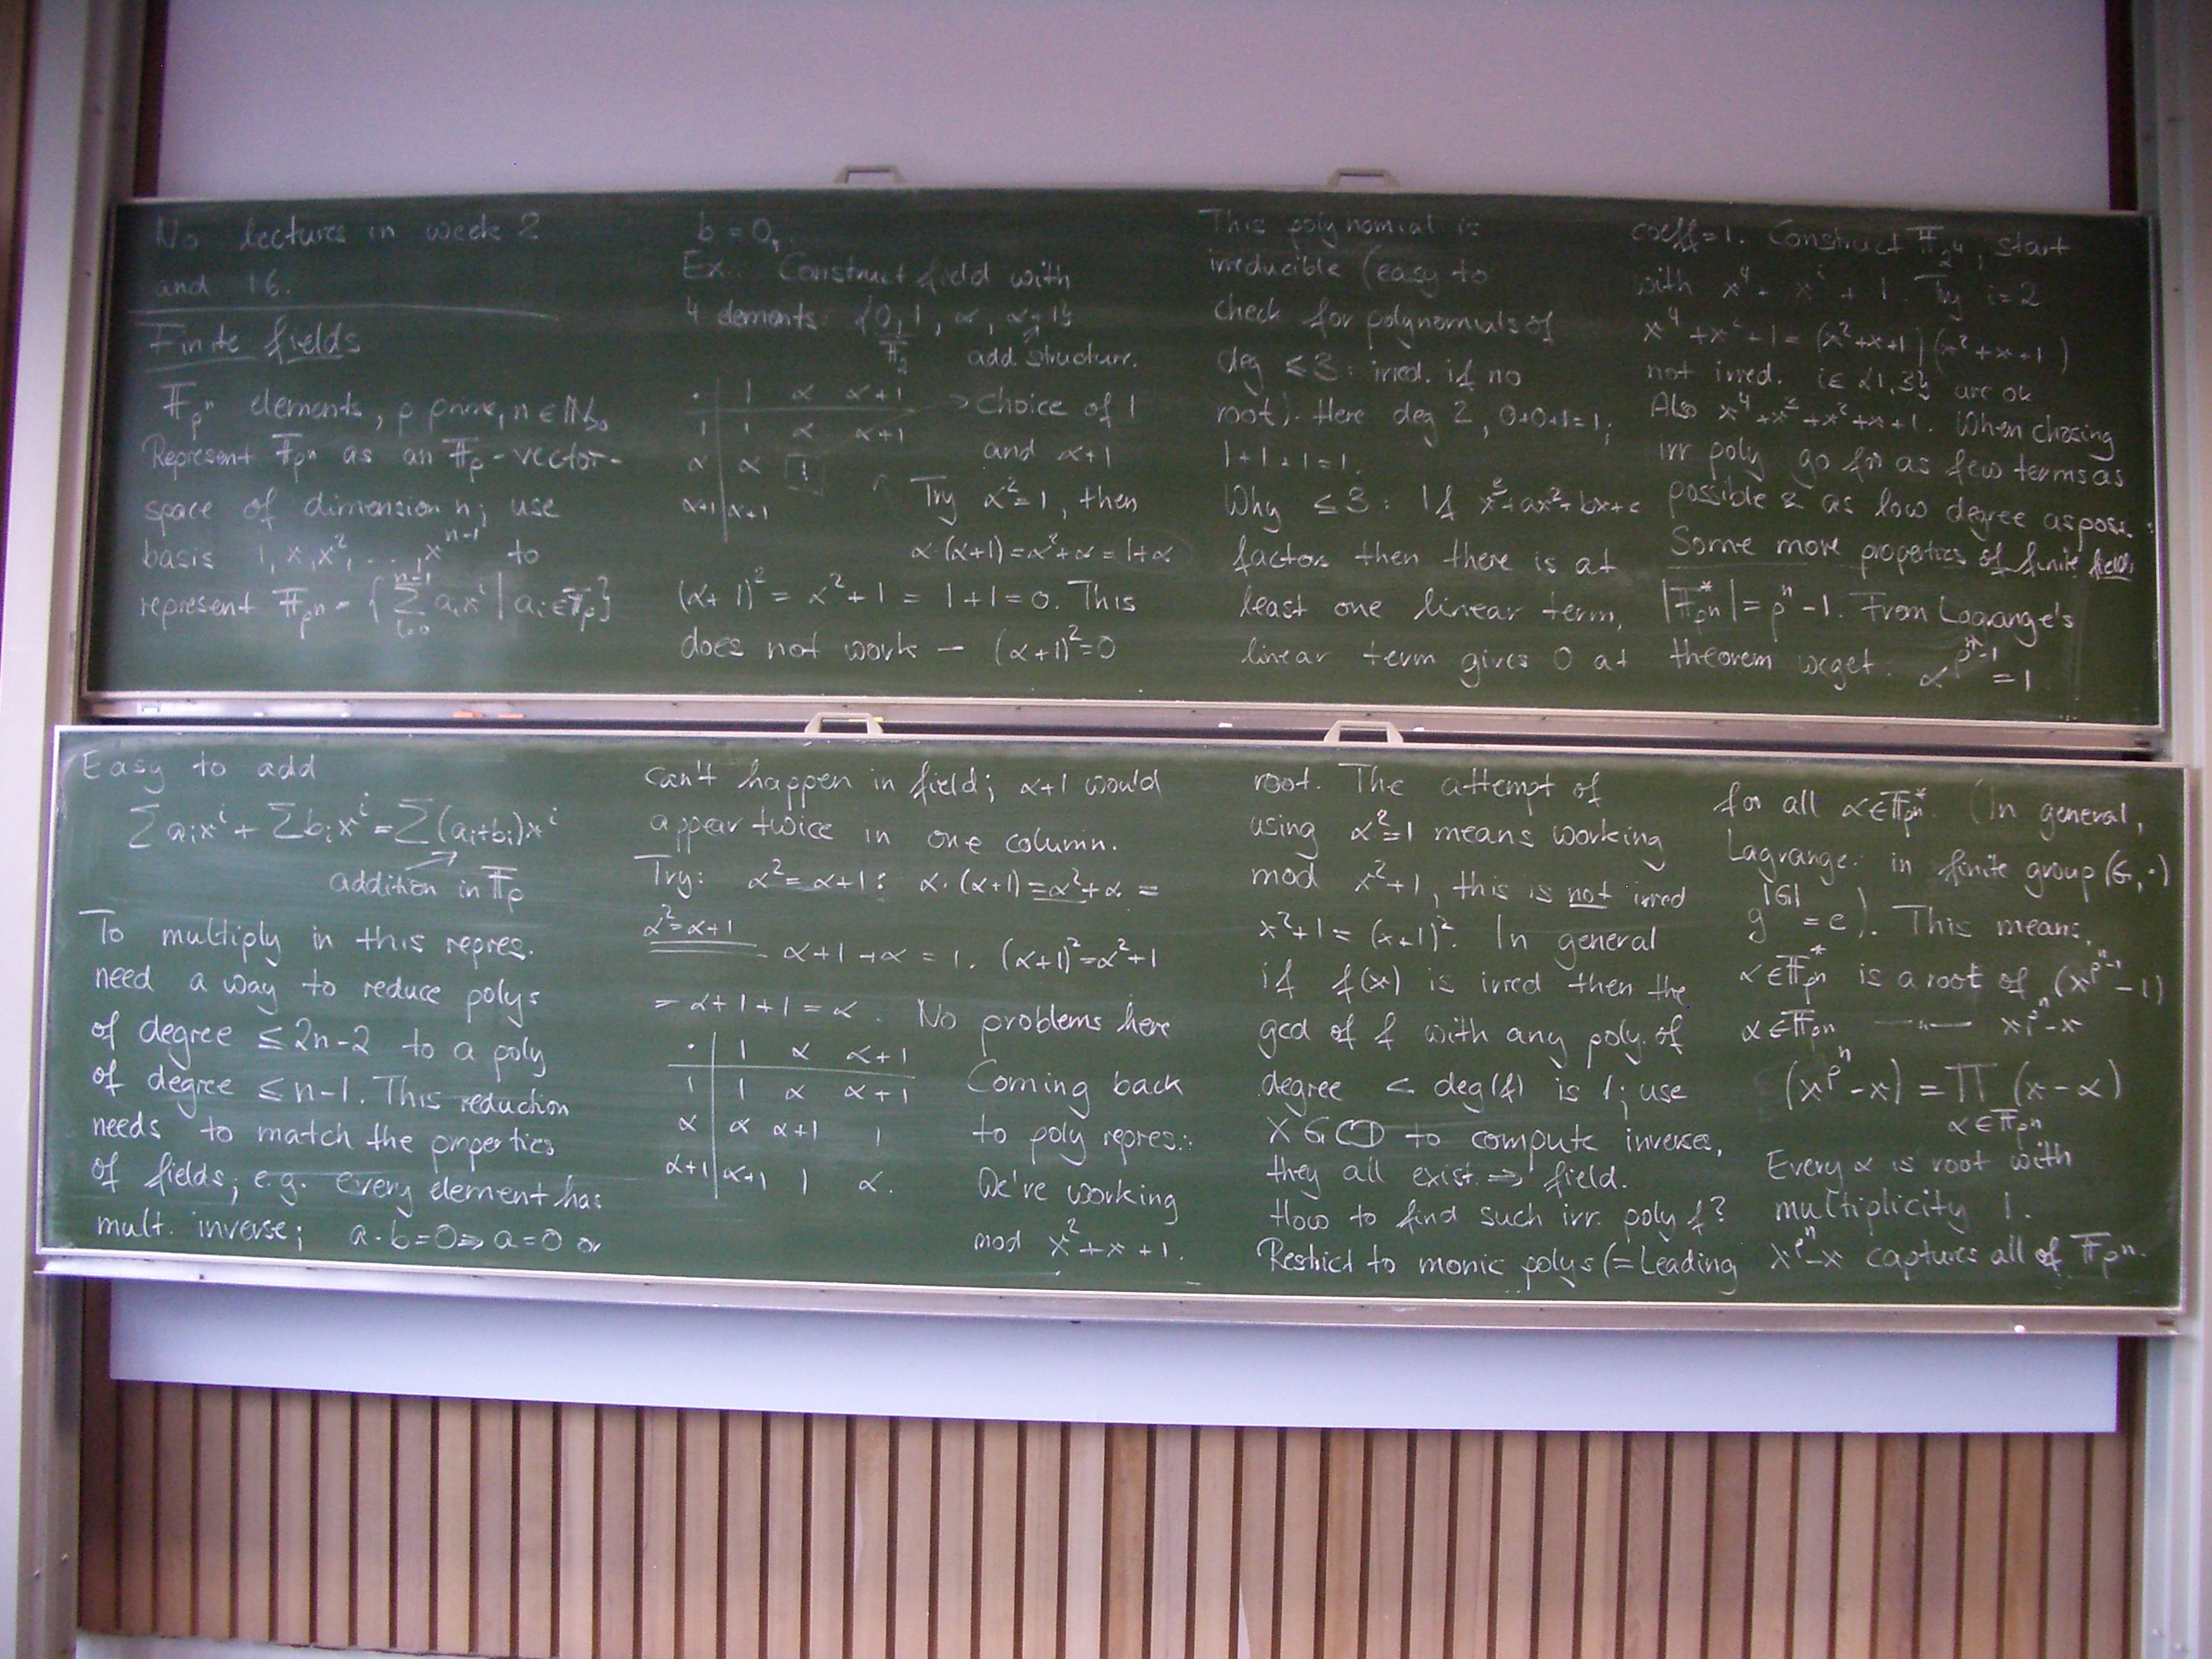 No lectures in week 2
and 16.
Finite fields
𝔽_{p^n} elements, p prime, n ∈ ℕ_{>0}
Represent 𝔽_{p^n} as an 𝔽_p-vector-
space of dimension n; use
basis 1, x, x², ..., x^{n-1} to
represent 𝔽_{p^n} = {∑_{i=0}^{n-1} a_i x^i | a_i ∈ 𝔽_p}
Easy to add
∑ a_i x^i + ∑ b_i x^i = ∑ (a_i+b_i) x^i
addition in 𝔽_p
To multiply in this repres.
need a way to reduce polys
of degree ≤ 2n-2 to a poly
of degree ≤ n-1. This reduction
needs to match the properties
of fields; e.g. every element has
mult. inverse; a·b=0 ⇒ a=0 or
b=0,
Ex.: Construct field with
4 elements: {0, 1, α, α+1}
𝔽_2 add. structure.
· | 1 α α+1 → choice of 1
1 | 1 α α+1 and α+1
α | α !
α+1 | α+1
Try α²=1, then
α·(α+1) = α²+α = 1+α
(α+1)² = α²+1 = 1+1=0. This
does not work – (α+1)²=0
can't happen in field; α+1 would
appear twice in one column.
Try: α²=α+1: α·(α+1) = α²+α =
α²=α+1
α+1+α = 1. (α+1)²=α²+1
= α+1+1 = α. No problems here
· | 1 α α+1
1 | 1 α α+1
α | α α+1 1
α+1 | α+1 1 α.
Coming back
to poly repres.:
We're working
mod x²+x+1.
This polynomial is
irreducible (easy to
check for polynomials of
deg ≤ 3: irred. if no
root). Here deg 2, 0+0+1=1;
1+1+1=1.
Why ≤ 3: If x³+ax²+bx+c
factors then there is at
least one linear term,
linear term gives 0 at
root. The attempt of
using α²=1 means working
mod x²+1, this is not irred
x²+1 = (x+1)². In general
if f(x) is irred then the
gcd of f with any poly. of
degree < deg(f) is 1; use
XGCD to compute inverses,
they all exist. ⇒ field.
How to find such irr. poly f?
Restrict to monic polys (= Leading
coeff=1. Construct 𝔽_{2^4}, start
with x⁴ + x^i + 1. Try i=2
x⁴+x²+1 = (x²+x+1)(x²+x+1)
not irred. i∈{1,3} are ok
Also x⁴+x³+x²+x+1. When chosing
irr poly go for as few terms as
possible & as low degree as poss.
Some more properties of finite fields
|𝔽*_{p^n}| = p^n-1. From Lagrange's
theorem we get: α^{p^n-1} = 1
for all α∈𝔽*_{p^n}. (In general,
Lagrange: in finite group (G,·)
g^{|G|} = e). This means,
α∈𝔽*_{p^n} is a root of (x^{p^n-1}-1)
α∈𝔽_{p^n} —"— x^{p^n}-x
(x^{p^n}-x) = ∏_{α∈𝔽_{p^n}} (x-α)
Every α is root with
multiplicity 1.
x^{p^n}-x captures all of 𝔽_{p^n}.